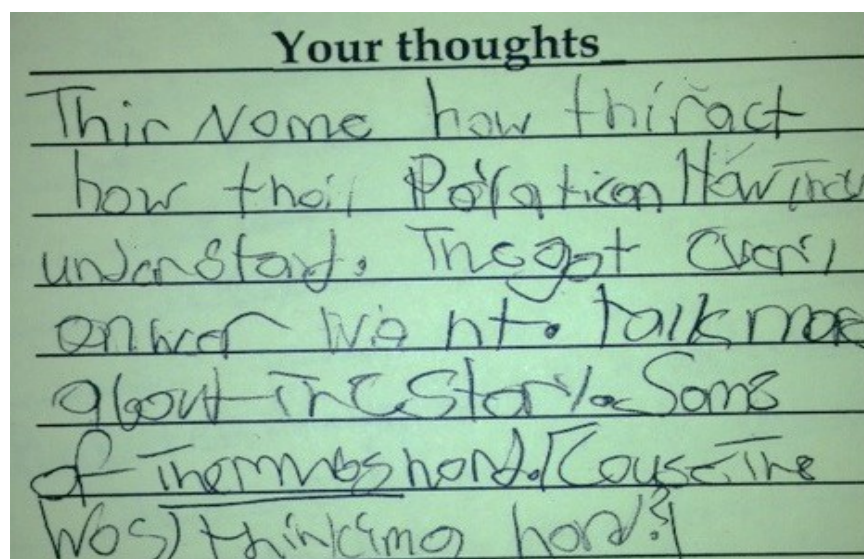 Your thoughts
Thir Nome how thiract
how thair Polatican How
understand. The got every
enwer Wie nt. talk more
about The Story. Some
of Them was hord. [Couse The
Wos] thinkimg hord?